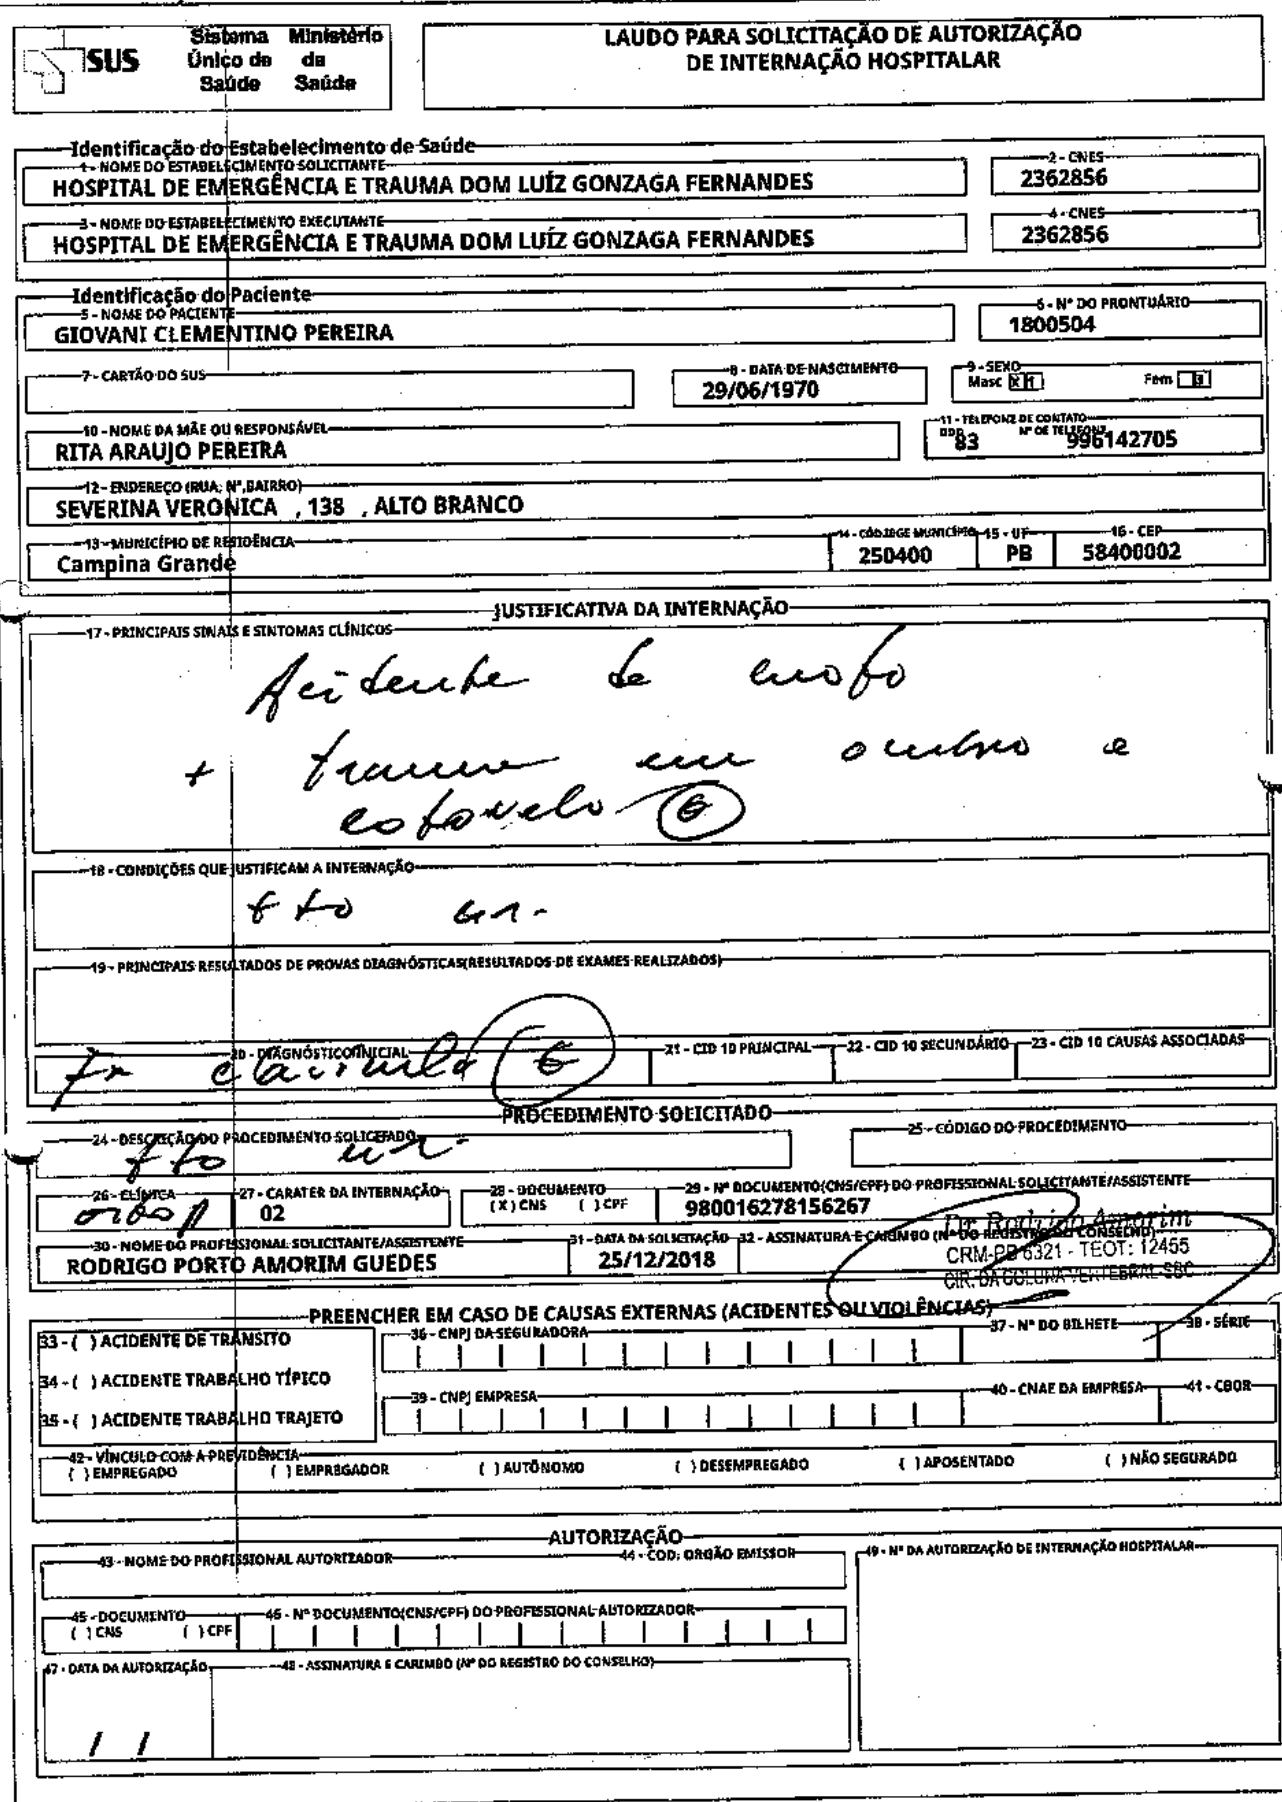 SUS
Sistema Único de Saúde
Ministério da Saúde
LAUDO PARA SOLICITAÇÃO DE AUTORIZAÇÃO
DE INTERNAÇÃO HOSPITALAR
Identificação do Estabelecimento de Saúde
1 - NOME DO ESTABELECIMENTO SOLICITANTE
2 - CNES
HOSPITAL DE EMERGÊNCIA E TRAUMA DOM LUÍZ GONZAGA FERNANDES
2362856
3 - NOME DO ESTABELECIMENTO EXECUTANTE
4 - CNES
HOSPITAL DE EMERGÊNCIA E TRAUMA DOM LUÍZ GONZAGA FERNANDES
2362856
Identificação do Paciente
5 - NOME DO PACIENTE
6 - Nº DO PRONTUÁRIO
GIOVANI CLEMENTINO PEREIRA
1800504
7 - CARTÃO DO SUS
8 - DATA DE NASCIMENTO
29/06/1970
9 - SEXO
Masc X 1 Fem 3
10 - NOME DA MÃE OU RESPONSÁVEL
RITA ARAUJO PEREIRA
11 - TELEFONE DE CONTATO
DDD Nº DE TELEFONE
83 996142705
12 - ENDEREÇO (RUA, Nº, BAIRRO)
SEVERINA VERONICA , 138 , ALTO BRANCO
13 - MUNICÍPIO DE RESIDÊNCIA
14 - CÓD.IBGE MUNICÍPIO 15 - UF 16 - CEP
Campina Grande
250400 PB 58400002
JUSTIFICATIVA DA INTERNAÇÃO
17 - PRINCIPAIS SINAIS E SINTOMAS CLÍNICOS
Acidente de moto
+ trauma em ombro e
cotovelo (E)
18 - CONDIÇÕES QUE JUSTIFICAM A INTERNAÇÃO
tto
19 - PRINCIPAIS RESULTADOS DE PROVAS DIAGNÓSTICAS(RESULTADOS DE EXAMES REALIZADOS)
20 - DIAGNÓSTICO INICIAL
21 - CID 10 PRINCIPAL 22 - CID 10 SECUNDÁRIO 23 - CID 10 CAUSAS ASSOCIADAS
Fr clavicula (E)
PROCEDIMENTO SOLICITADO
24 - DESCRIÇÃO DO PROCEDIMENTO SOLICITADO
25 - CÓDIGO DO PROCEDIMENTO
tto
26 - CLÍNICA
27 - CARATER DA INTERNAÇÃO
02
28 - DOCUMENTO
(X) CNS ( ) CPF
29 - Nº DOCUMENTO(CNS/CPF) DO PROFISSIONAL SOLICITANTE/ASSISTENTE
980016278156267
30 - NOME DO PROFISSIONAL SOLICITANTE/ASSISTENTE
RODRIGO PORTO AMORIM GUEDES
31 - DATA DA SOLICITAÇÃO
25/12/2018
32 - ASSINATURA E CARIMBO (Nº DO REGISTRO DO CONSELHO)
Dr. Rodrigo Amorim
CRM-PB 6321 - TEOT: 12455
CIR. DA COLUNA VERTEBRAL-SBC
PREENCHER EM CASO DE CAUSAS EXTERNAS (ACIDENTES OU VIOLÊNCIAS)
33 - ( ) ACIDENTE DE TRÂNSITO
36 - CNPJ DA SEGURADORA
37 - Nº DO BILHETE
38 - SÉRIE
34 - ( ) ACIDENTE TRABALHO TÍPICO
39 - CNPJ EMPRESA
40 - CNAE DA EMPRESA
41 - CBOR
35 - ( ) ACIDENTE TRABALHO TRAJETO
42 - VÍNCULO COM A PREVIDÊNCIA
( ) EMPREGADO ( ) EMPREGADOR ( ) AUTÔNOMO ( ) DESEMPREGADO ( ) APOSENTADO ( ) NÃO SEGURADO
AUTORIZAÇÃO
43 - NOME DO PROFISSIONAL AUTORIZADOR
44 - COD. ORGÃO EMISSOR
49 - Nº DA AUTORIZAÇÃO DE INTERNAÇÃO HOSPITALAR
45 - DOCUMENTO
( ) CNS ( ) CPF
46 - Nº DOCUMENTO(CNS/CPF) DO PROFISSIONAL AUTORIZADOR
47 - DATA DA AUTORIZAÇÃO
48 - ASSINATURA E CARIMBO (Nº DO REGISTRO DO CONSELHO)
/ /